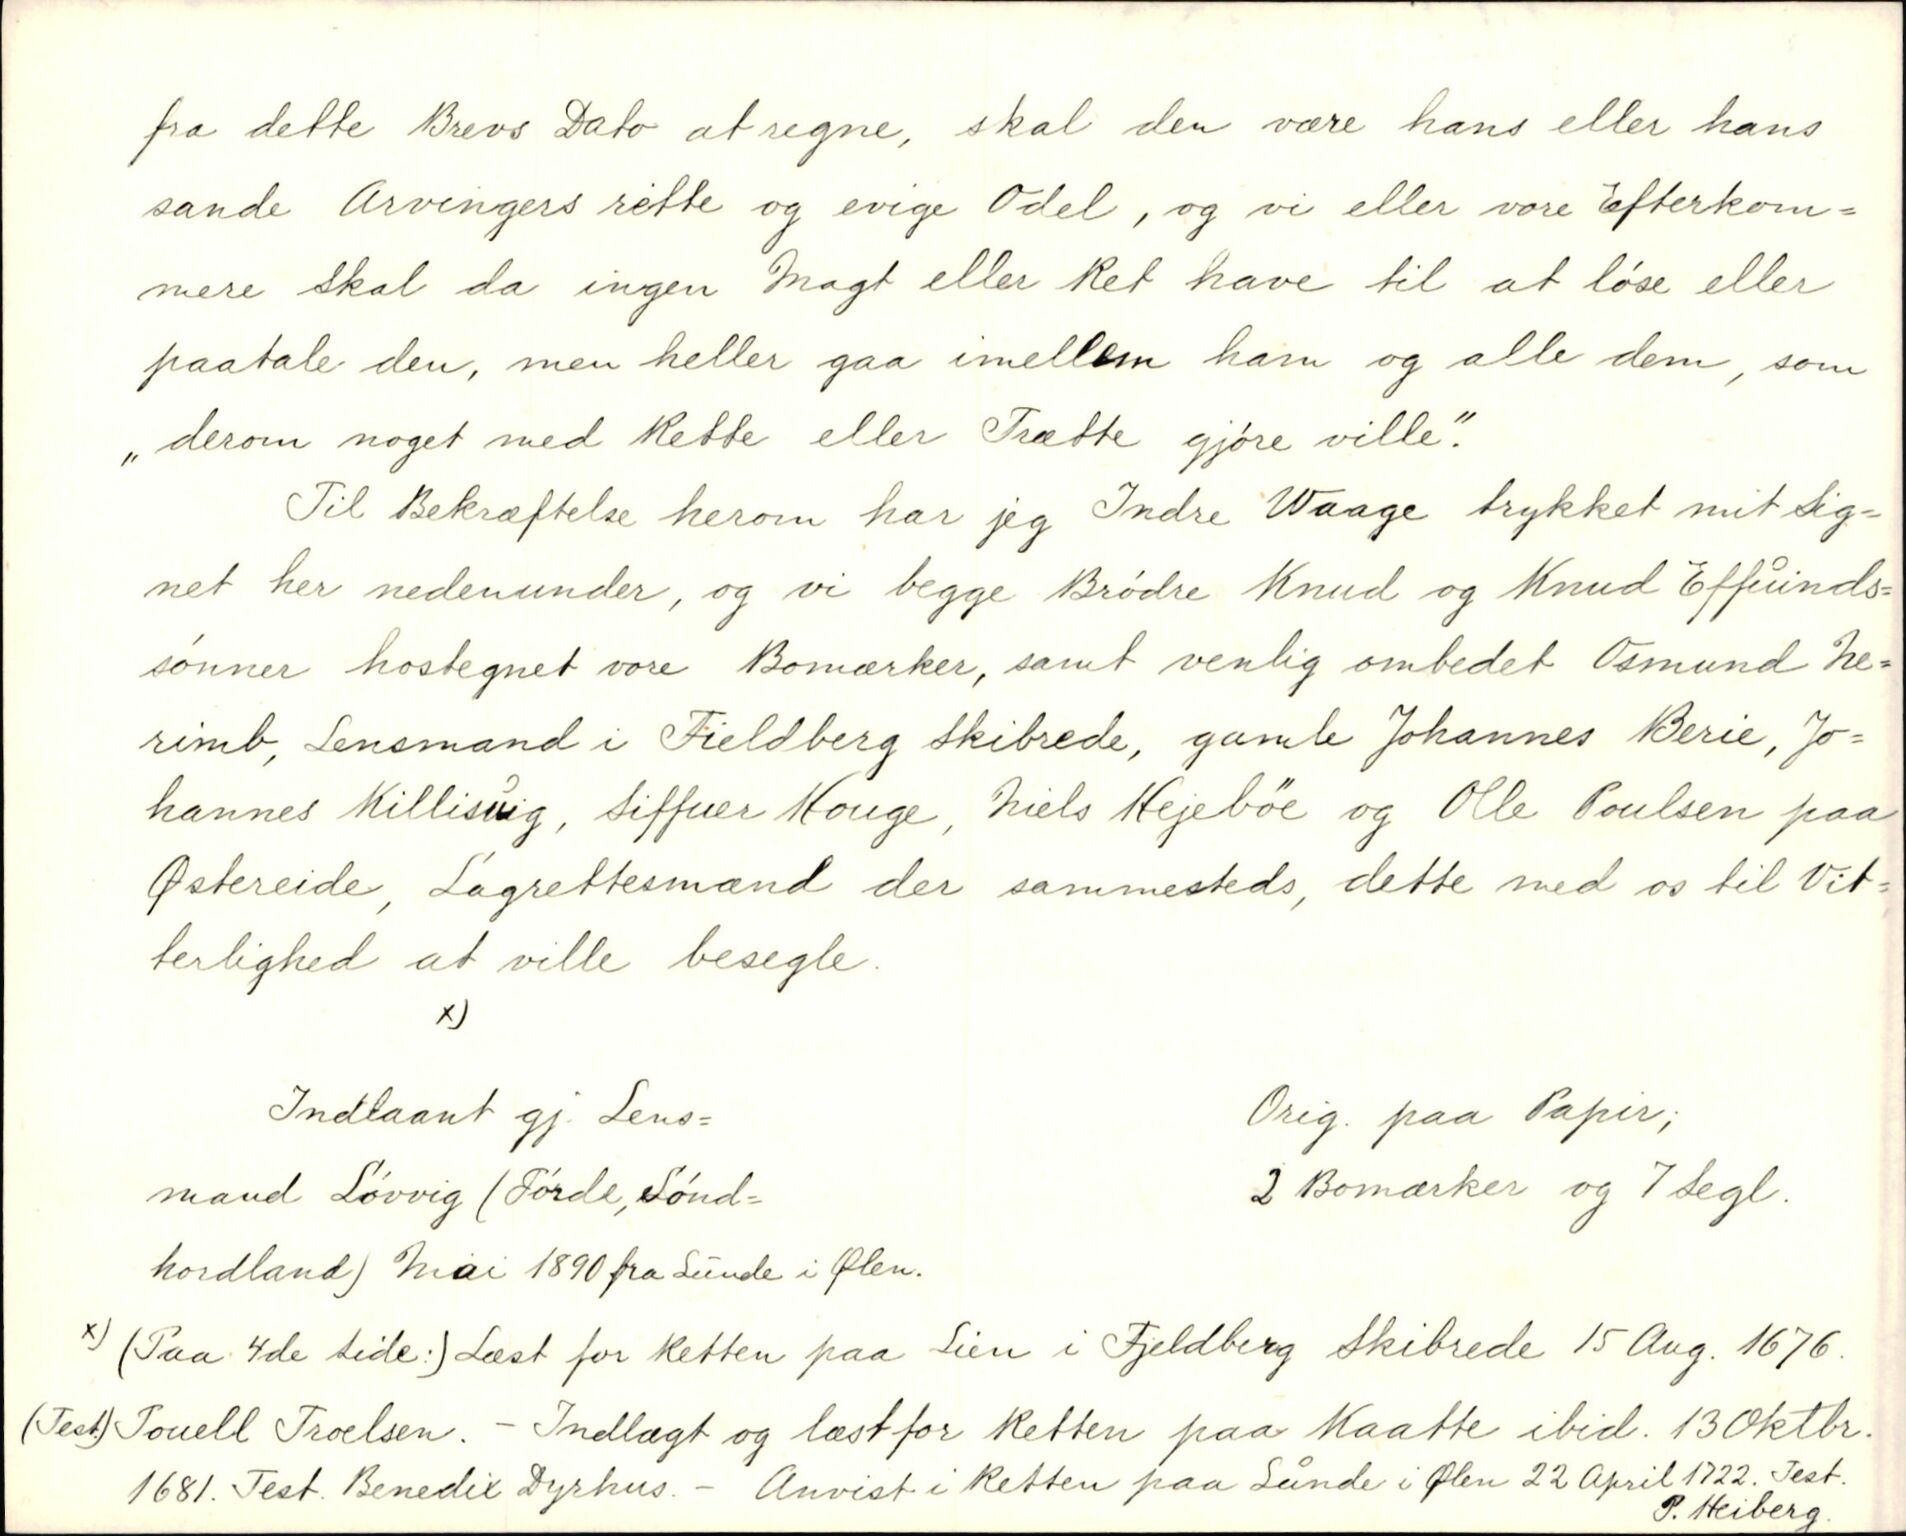 fra dette Brevs Dato at regne, skal den være hans eller hans
sande Arvingers rette og evige Odel, og vi eller vore Efterkom=
mere skal da ingen Magt eller Ret have til at løse eller
paatale den, men heller gaa imellem ham og alle dem, som
„derom noget med Rette eller Trætte gjøre ville".
Til Bekræftelse herom har jeg Indre Waage trykket mit Sig=
net her nedenunder, og vi begge Brødre Knud og Knud Effuinds=
sønner hostegnet vore Bomærker, samt venlig ombedet Osmund Ne=
rimb, Lensmand i Fieldberg Skibrede, gamle Johannes Berie, Jo=
hannes Killisuig, Siffuer Houge, Niels Hejebøe og Olle Poulsen paa
Østereide, Lagrettesmænd der sammesteds, dette med os til Vit=
terlighed at ville besegle.
x)
Indlaant gj. Lens=
mand Løvvig (Førde, Sønd=
hordland) Mai 1890 fra Lunde i Ølen.
Orig. paa Papir;
2 Bomærker og 7 Segl.
x) (Paa 4de Side:) Læst for Retten paa Lien i Fjeldberg Skibrede 15 Aug. 1676.
(Test.) Pouell Troelsen. – Indlagt og læst for Retten paa Kaatte ibid. 13 Oktbr.
1681. Test. Benedix Dyrhus. – Anvist i Retten paa Lunde i Ølen 22 April 1722. Test.
P. Heiberg.